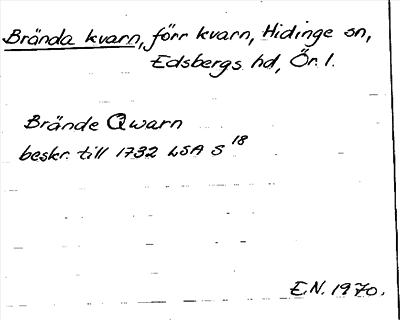 Brända kvarn, förr kvarn, Hidinge sn,
Edsbergs hd, Ör. l.
Brände Qwarn
beskr. till 1732 LSA S 18
E.N. 1970.